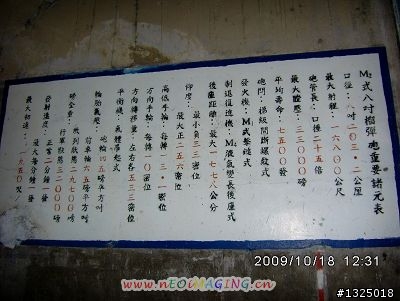 M₂式八吋榴彈砲重要諸元表
口徑：八吋(203.2公厘)
最大射程：一六八〇〇公尺
砲管長：口徑二十五倍
最大膛壓：三三〇〇〇磅
平均壽命：七五〇〇發
砲閂：梯級間斷螺紋式
發火機：M₁式擊錘式
制退復進機：M₄液氣變長後座式
後座距離：最大一七七八公分
仰度：最小負三三密位
最大五二六密位
高低手輪：每轉一〇密位
方向手輪：每轉一〇密位
方向轉移量：左右各五三三密位
平衡機：氣體吊起式
輪胎氣壓：砲輪四五磅平方吋
前車輪六五磅平方吋
磅全重：放列狀態二九七〇〇磅
行軍狀態三二〇〇〇磅
發射速度：正常二分鐘一發
最大每分鐘一發
最大初速：一九五〇呎/
2009/10/18 12:31
www.nEOiMAGING.cn
#1325018